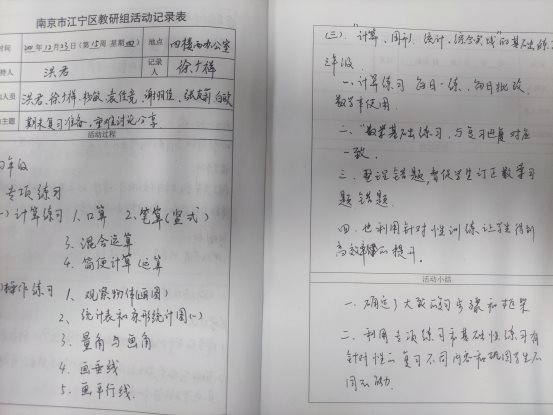 南京市江宁区教研组活动记录表
时间 年12月23日(第15周 星期四) 地点 四楼西办公室
持人 洪君 记录人
人员 洪君、
主题 期末复习准备,重难讨论分享
活动过程
年级
专项练习
一)计算练习 1、口算 2、笔算(竖式)
3、混合运算
4、简便计算
操作练习 1、观察物体(画图)
2、统计表和条形统计图(一)
3、量角与画角
4、画垂线
5、画平行线.
(三)"计算、图形、统计、综合实践"的基础练
三年级
一、计算练习 每日一练、每日批改
使用
二、"数学基础练习,与复习
一致.
三、整理错题,督促学生订正数学习
题错题.
四、也利用针对性训练,让学生得到
高效率的提升.
活动小结
一、确定了大致的复习步骤和框架
二、利用专项练习和基础性练习有
针对性的复习不同内容和巩固学生不
同